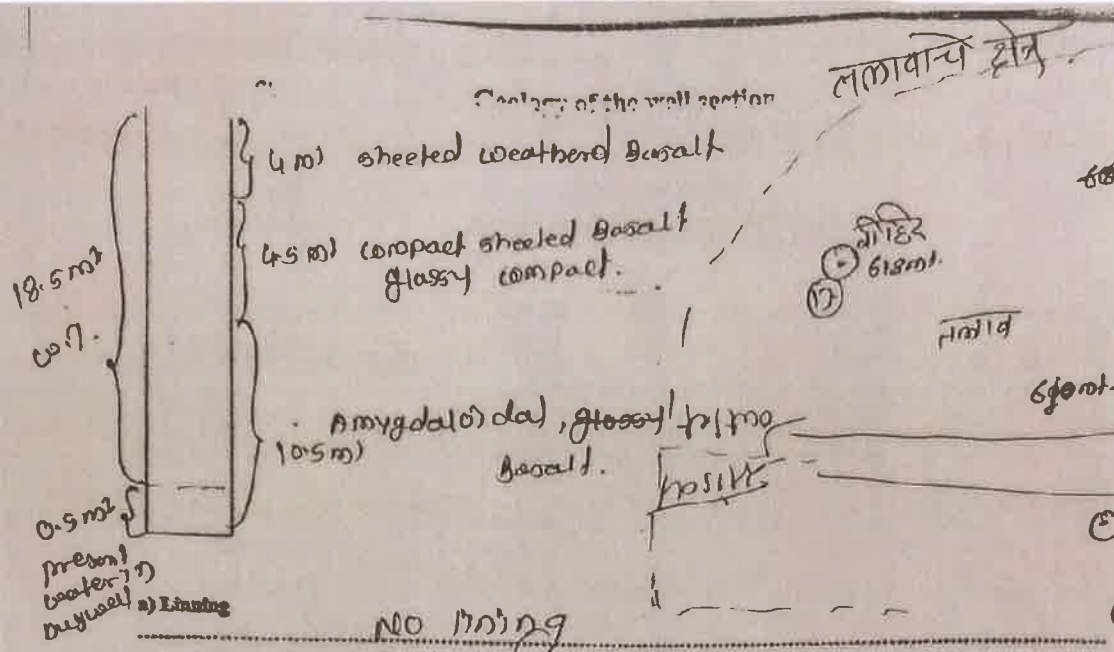 Geology of the well section
तलावाचे क्षेत्र
4 m) sheeted weatherd Basalt
4.5 m) compact sheeted Basalt
glassy compact.
18.5 m
विहिर
618mt.
17
तलाव
Amygdaloidal, glossy
10.5 m)
Basalt.
0.5 m
present
water in
dugwell
a) Linning
No lining